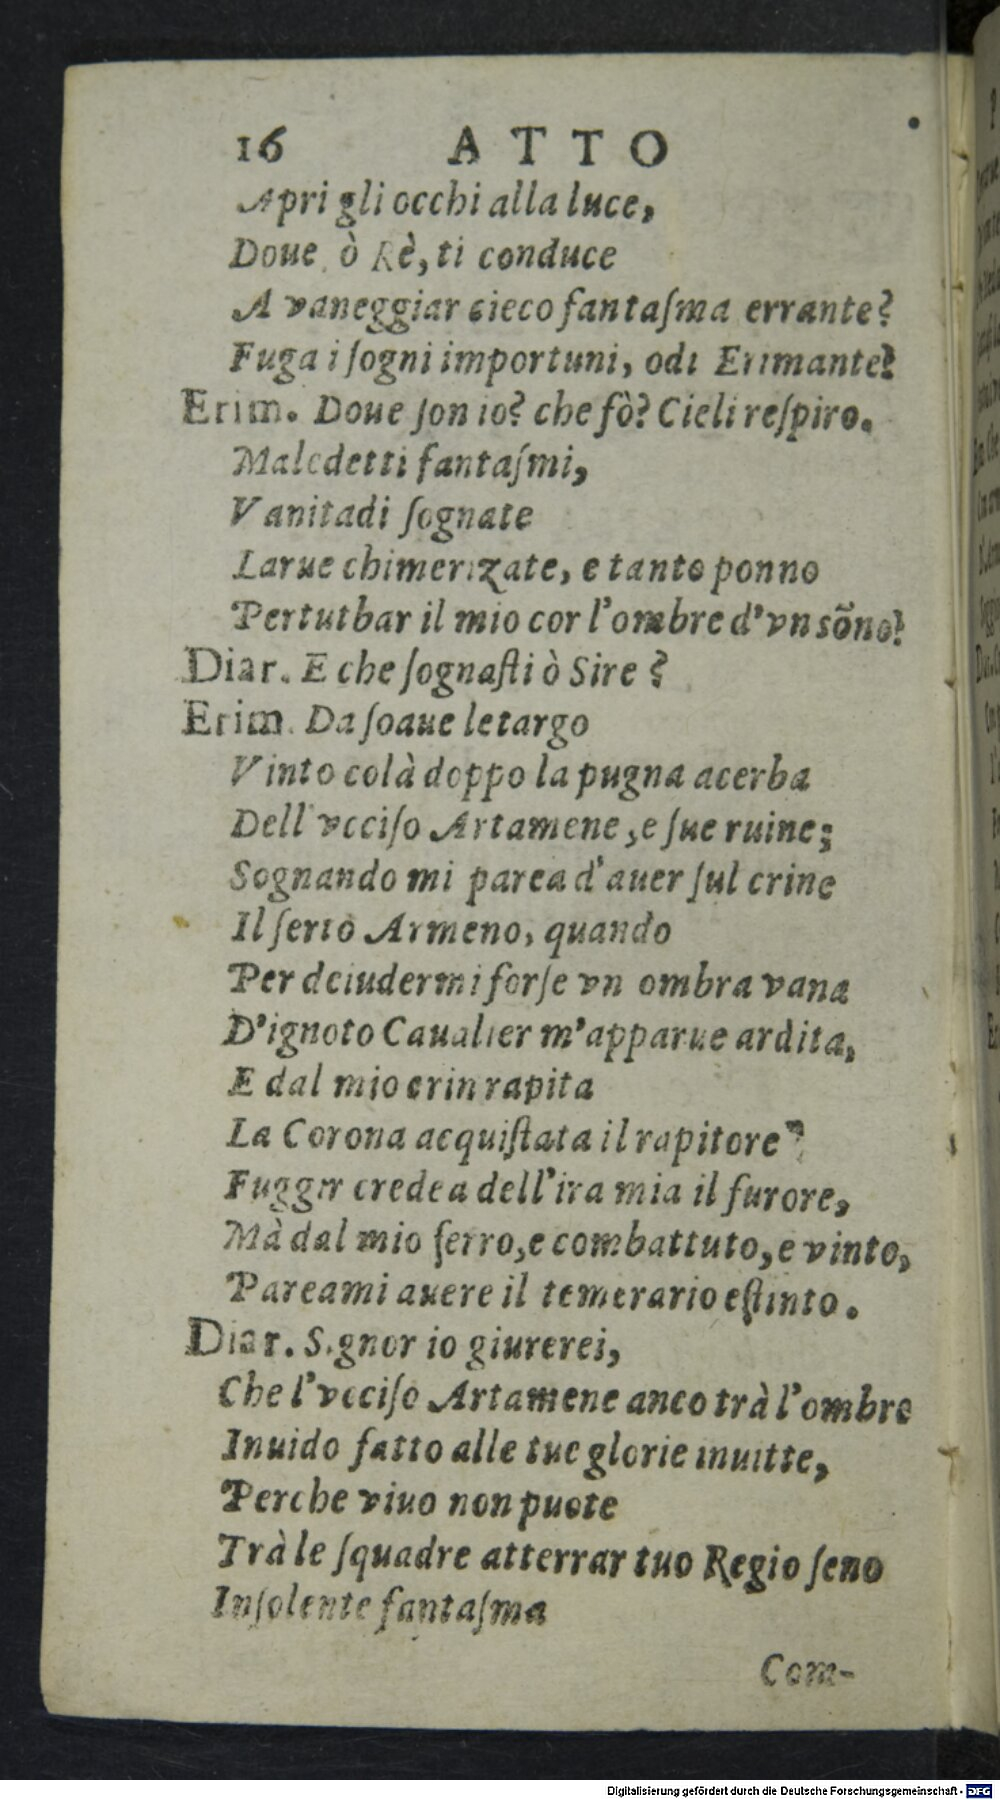 16 ATTO
Apri gli occhi alla luce,
Doue ò Rè, ti conduce
A vaneggiar cieco fantaſma errante?
Fuga i ſogni importuni, odi Erimante?
Erim. Doue ſon io? che fò? Cieli reſpiro.
Maledetti fantaſmi,
Vanitadi ſognate
Larue chimerizate, e tanto ponno
Pertutbar il mio cor l'ombre d'vn sõno?
Diar. E che ſognaſti ò Sire?
Erim. Da ſoaue letargo
Vinto colà doppo la pugna acerba
Dell'vcciſo Artamene, e ſue ruine;
Sognando mi parea d'auer ſul crine
Il ſerto Armeno, quando
Per deiudermi forſe vn ombra vana
D'ignoto Caualier m'apparue ardita,
E dal mio crin rapita
La Corona acquiſtata il rapitore
Fuggir credea dell'ira mia il furore,
Mà dal mio ferro, e combattuto, e vinto,
Pareami auere il temerario eſtinto.
Diar. Signor io giurerei,
Che l'vcciſo Artamene anco trà l'ombre
Inuido fatto alle tue glorie inuitte,
Perche viuo non puote
Trà le ſquadre atterrar tuo Regio ſeno
Inſolente fantaſma
Com-
Digitalisierung gefördert durch die Deutsche Forschungsgemeinschaft - DFG